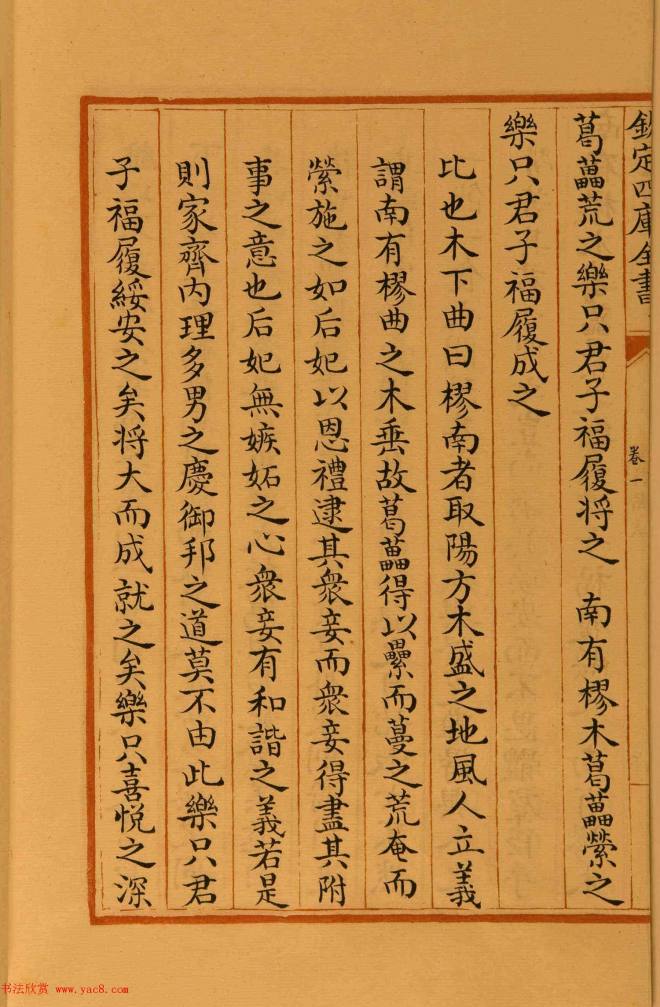 欽定四庫全書
卷一
葛藟荒之樂只君子福履将之　南有樛木葛藟縈之
樂只君子福履成之
比也木下曲曰樛南者取陽方木盛之地風人立義
謂南有樛曲之木垂故葛藟得以纍而蔓之荒奄而
縈施之如后妃以恩禮逮其衆妾而衆妾得盡其附
事之意也后妃無嫉妬之心衆妾有和諧之義若是
則家齊内理多男之慶御邦之道莫不由此樂只君
子福履綏安之矣将大而成就之矣樂只喜悦之深
书法欣赏 www.yac8.com